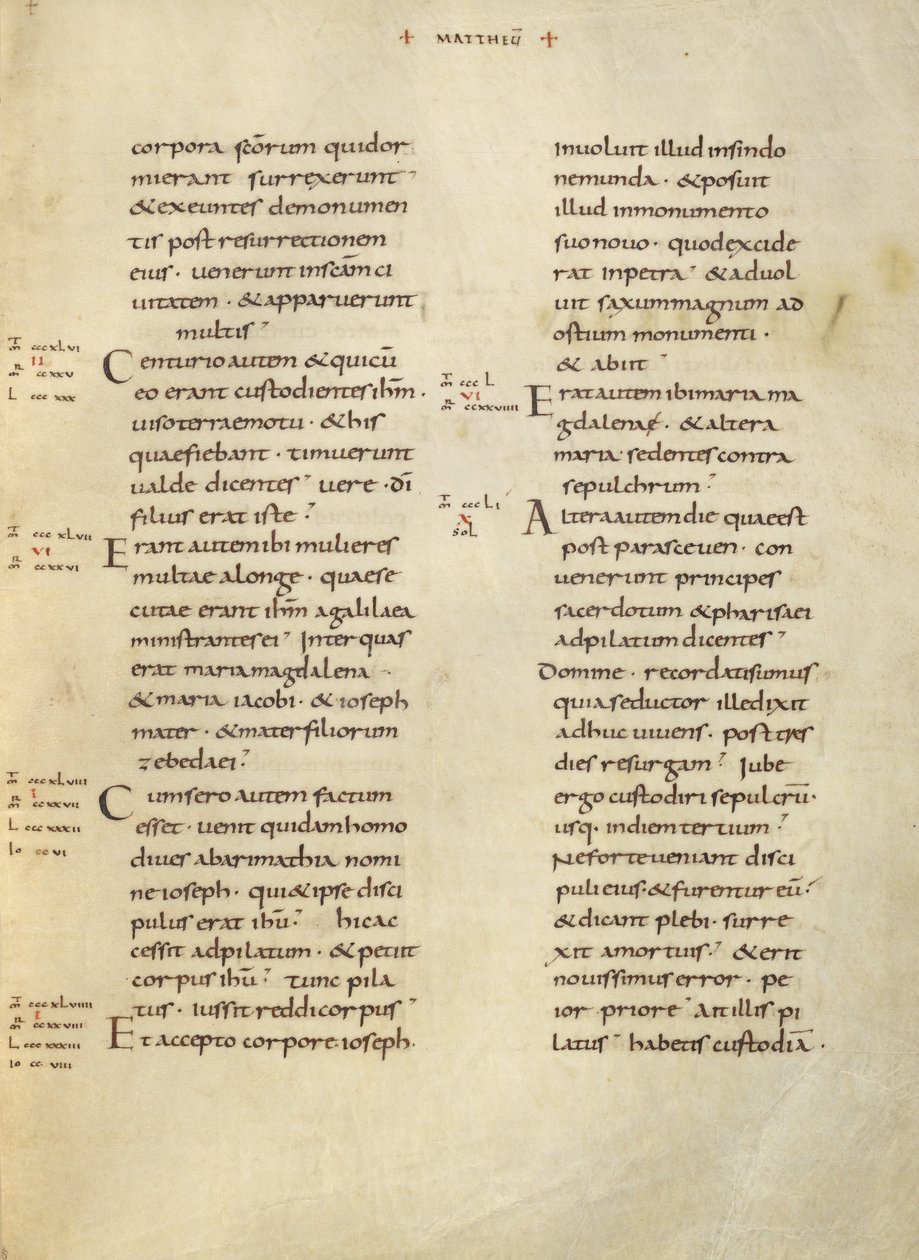 + MATTHEŪ +
corpora sc̄orum qui dor
mierant surrexerunt
& exeuntes de monumen
tis post resurrectionem
eius · venerunt in sc̄am ci
uitatem · & apparuerunt
multis
T̄m cccxLvi
II
R̄m ccxxv
L cccxxx
Centurio autem & qui cū
eo erant custodientes ih̄m ·
uiso terrae motu · & his
quae fiebant · timuerunt
ualde dicentes vere · dī
filius erat iste
T̄m cccxLvii
VI
R̄m ccxxvi
Erant autem ibi mulieres
multae a longe · quae se
cutae erant ih̄m a galilaea
ministrantes ei Inter quas
erat maria magdalena
& maria iacobi · & ioseph
mater · & mater filiorum
zebedaei
T̄m cccxLviii
I
R̄m ccxxvii
L cccxxxii
Io ccvi
Cum sero autem factum
esset · venit quidam homo
diues ab arimathia nomi
ne ioseph · qui & ipse disci
pulus erat ih̄u hic ac
cessit ad pilatum · & petiit
corpus ih̄u tunc pila
tus · iussit reddi corpus
T̄m cccxLviiii
I
R̄m ccxxviii
L cccxxxiii
Io ccviii
Et accepto corpore ioseph ·
Inuoluit illud in sindo
ne munda · & posuit
illud in monumento
suo nouo · quod excide
rat in petra & aduol
uit saxum magnum ad
ostium monumenti ·
& abiit
T̄m cccL
VI
R̄m ccxxviiii
Erat autem ibi maria ma
gdalenae · & altera
maria sedentes contra
sepulchrum
T̄m cccLi
X
SoL
Altera autem die quae est
post parasceuen · con
venerunt principes
sacerdotum & pharisaei
ad pilatum dicentes
Domine · recordati sumus
quia seductor ille dixit
adhuc uiuens · post tres
dies resurgam Iube
ergo custodiri sepulcrū ·
usq · in diem tertium
Ne forte veniant disci
puli eius · & furentur eū
& dicant plebi · surre
xit a mortuis & erit
nouissimus error · pe
ior priore Ait illis pi
latus habetis custodiā ·